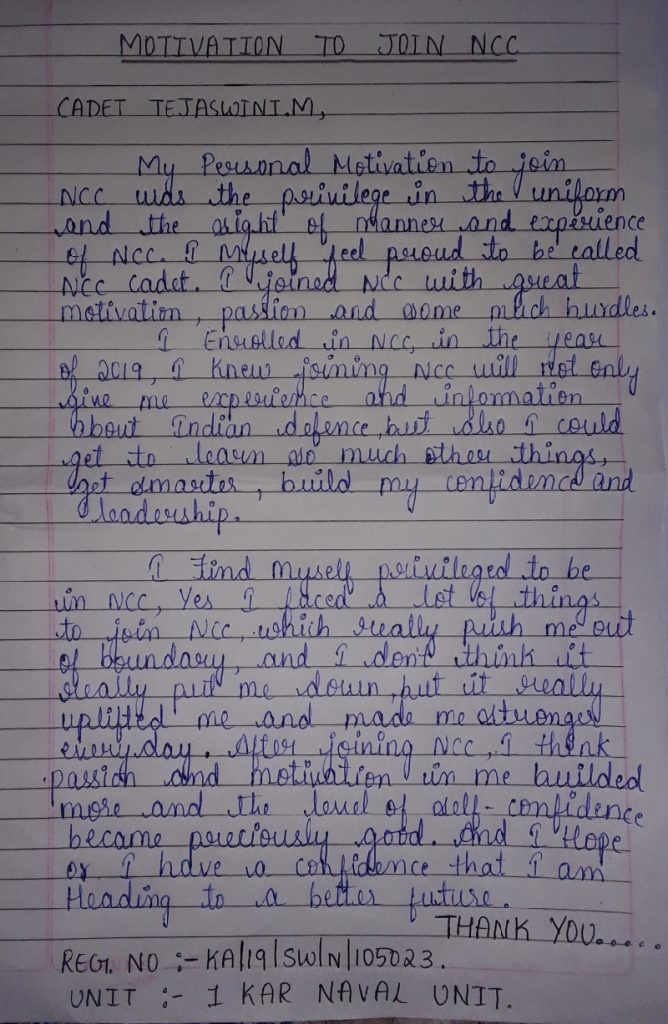 MOTIVATION TO JOIN NCC
CADET TEJASWINI.M,
My Personal Motivation to join
NCC was the privilege in the uniform
and the sight of manner and experience
of NCC. I Myself feel proud to be called
NCC cadet. I joined NCC with great
motivation, passion and some much hurdles.
I Enrolled in NCC, in the year
of 2019, I Knew joining NCC will not only
give me experience and information
about Indian defence, but also I could
get to learn so much other things,
get smarter, build my confidence and
leadership.
I Find Myself privileged to be
in NCC, Yes I faced a lot of things
to join NCC, which really push me out
of boundary, and I don't think it
really put me down, but it really
uplifted me and made me stronger
everyday. After joining NCC, I think
passion and motivation in me builded
more and the level of self-confidence
became preciously good. And I Hope
or I have a confidence that I am
Heading to a better future.
THANK YOU......
REG. NO :- KA|19|SW|N|105023.
UNIT :- 1 KAR NAVAL UNIT.